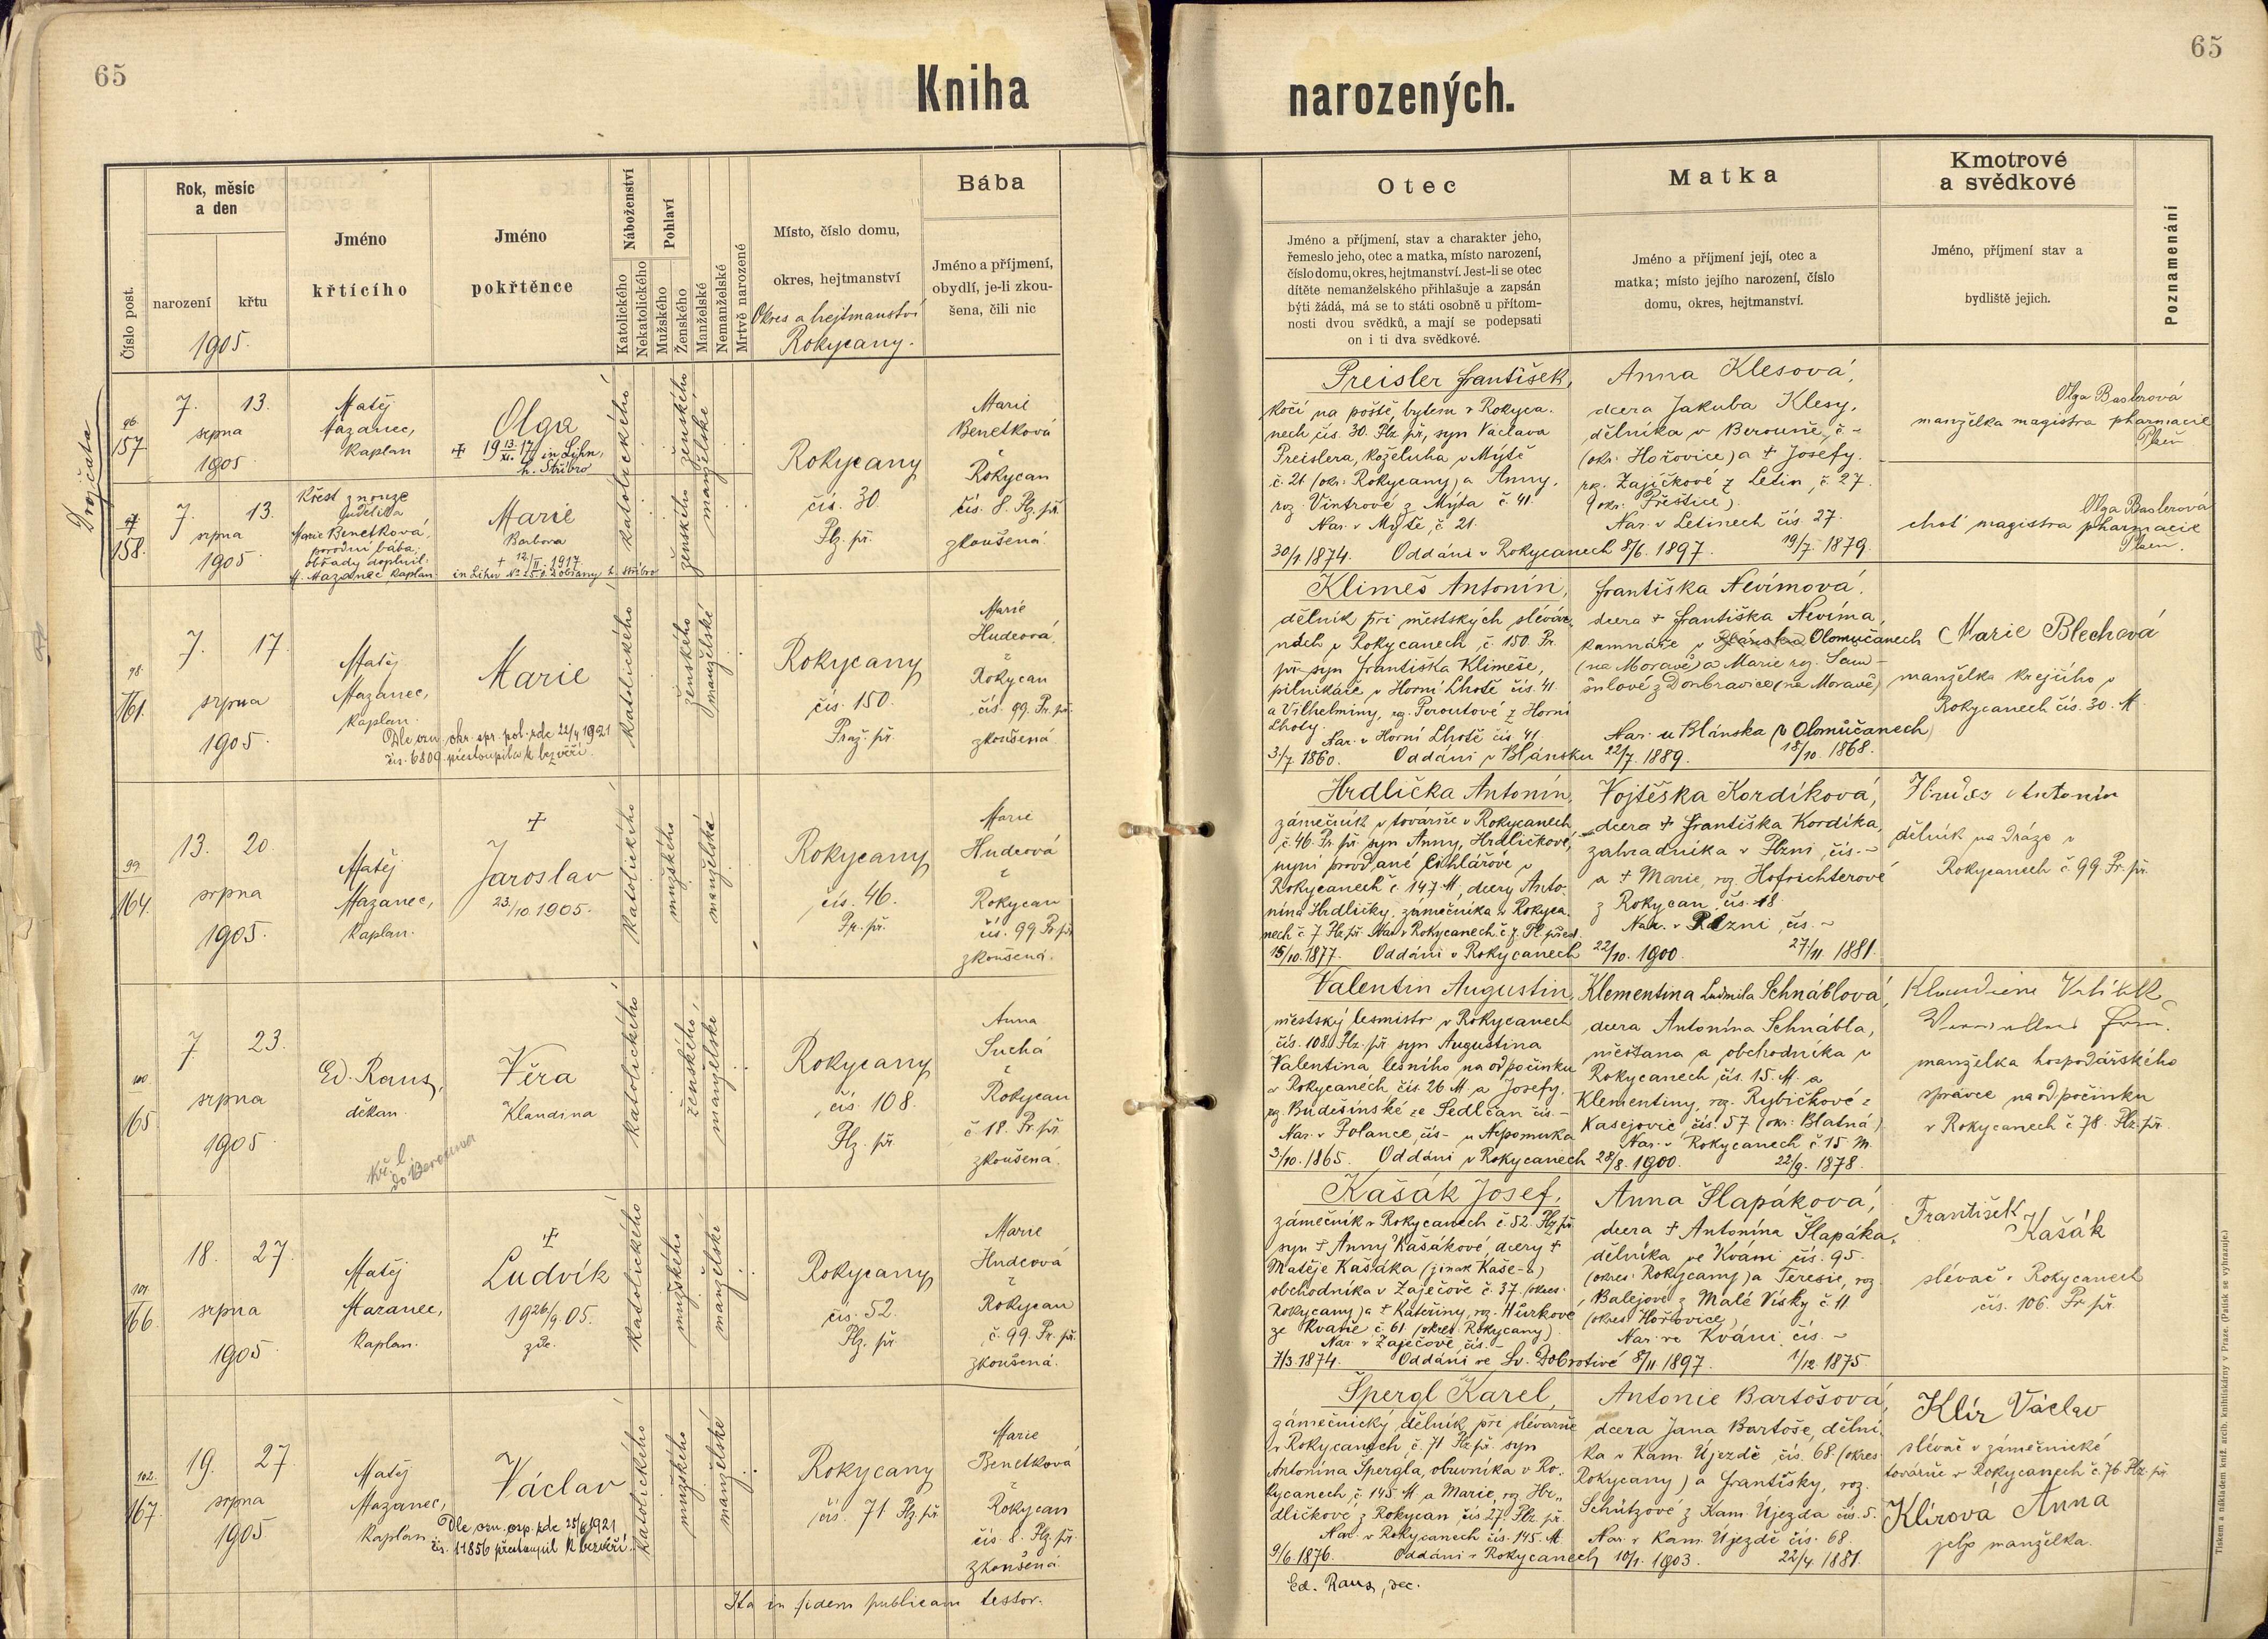 65
65
Kniha
narozených.
Číslo post.
Rok, měsíc
a den
narození
křtu
1905.
Jméno
křtícího
Jméno
pokřtěnce
Náboženství
Katolického
Nekatolického
Pohlaví
Mužského
Ženského
Manželské
Nemanželské
Mrtvě narozené
Místo, číslo domu,
okres, hejtmanství
Okres a hejtmanství
Rokycany.
Bába
Jméno a příjmení,
obydlí, je-li zkou-
šena, čili nic
Otec
Jméno a příjmení, stav a charakter jeho,
řemeslo jeho, otec a matka, místo narození,
číslo domu, okres, hejtmanství. Jest-li se otec
dítěte nemanželského přihlašuje a zapsán
býti žádá, má se to státi osobně u přítom-
nosti dvou svědků, a mají se podepsati
on i ti dva svědkové.
Matka
Jméno a příjmení její, otec a
matka; místo jejího narození, číslo
domu, okres, hejtmanství.
Kmotrové
a svědkové
Jméno, příjmení stav a
bydliště jejich.
Poznamenání
Dvojčata
96.
157.
7. 13.
srpna
1905
Matěj
Mazanec,
kaplan
Olga
katolického
ženského
manželské
Rokycany
čís. 30
Plz. př.
Marie
Benetková
z
Rokycan
čís. 8. Plz. př.
zkoušená.
Preisler František,
kočí na poště, bytem v Rokyca-
nech čís. 30. Plz. př., syn Václava
Preislera, koželuha v Mýtě
č. 21 (okr. Rokycany) a Anny,
roz. Vintrové z Mýta č. 41.
Nar. v Mýtě, č. 21.
30/1. 1874. Oddáni v Rokycanech 8/6. 1897.
Anna Klesová,
dcera Jakuba Klesy,
dělníka v Berouně, č. -
(okr. Hořovice) a † Josefy,
roz. Zajíčkové z Letin, č. 27.
(okr. Přeštice).
Nar. v Letinech čís. 27.
19/7. 1879.
Olga Baslerová
manželka magistra pharmacie
Plzeň
158.
7. 13.
srpna
1905
Křest z nouze
udělila
Marie Benetková,
porodní bába,
obřady doplnil:
M. Mazanec kaplan.
Marie
Barbora
katolického
ženského
manželské
Olga Baslerová
choť magistra pharmacie
Plzeň.
98.
161.
7. 17.
srpna
1905.
Matěj
Mazanec,
kaplan.
Marie
Dle ozn. okr. spr. pol. zde 22/4 1921
čís. 6809 přestoupila k bezvěří.
katolického
ženského
manželské
Rokycany
čís. 150.
Praž. př.
Marie
Hudcová
z
Rokycan
čís. 99. Pr. př.
zkoušená
Klimeš Antonín,
dělník při městských slévár-
nách v Rokycanech, č. 150. Pr.
př., syn Františka Klimeše,
pilnikáře v Horní Lhotě čís. 41.
a Vilhelminy, roz. Peroutové z Horní
Lhoty.
Nar. v Horní Lhotě čís. 41.
3/7. 1860. Oddáni v Blánsku 22/7. 1889.
Františka Nevímová,
dcera † Františka Nevíma,
kamnáře v Olomučanech
(na Moravě) a Marie roz. Sam-
šulové z Doubravice (na Moravě)
Nar. u Blánska (v Olomučanech)
18/10. 1868.
Marie Blechová
manželka krejčího v
Rokycanech čís. 30. M.
99
164.
13. 20.
srpna
1905.
Matěj
Mazanec,
kaplan.
†
Jaroslav
23/10 1905.
katolického
mužského
manželské
Rokycany
čís. 46.
Pr. př.
Marie
Hudcová
z
Rokycan
čís. 99 Pr. př.
zkoušená.
Hrdlička Antonín,
zámečník v továrně v Rokycanech
č. 46. Pr. př. syn Anny, Hrdličkové,
nyní provdané Cihlářové v
Rokycanech č. 147 M, dcery Anto-
nína Hrdličky, zámečníka v Rokyca-
nech č. 7 Plz. př. Nar. v Rokycanech č. 7. Pl. před.
15/10. 1877. Oddáni v Rokycanech 22/10. 1900.
Vojtěška Kordíková,
dcera † Františka Kordíka,
zahradníka v Plzni, čís. -
a † Marie, roz. Hofrichterové
z Rokycan, čís. 18.
Nar. v Plzni, čís. -
27/11. 1881.
Antonín
dělník na dráze v
Rokycanech č. 99 Pr. př.
100.
165.
7 23.
srpna
1905.
Ed. Raus,
děkan.
Věra
Klaudina
katolického
ženského
manželské
Rokycany
čís. 108
Plz. př.
Anna
Suchá
z
Rokycan
č. 18. Pr. př.
zkoušená.
Valentin Augustin,
městský lesmistr v Rokycanech
čís. 108. Plz. př. syn Augustina
Valentina lesního na odpočinku
v Rokycanech čís. 26 M. a Josefy,
roz. Budešínské ze Sedlčan čís. -
Nar. v Polance, čís - u Nepomuka
3/10. 1865. Oddáni v Rokycanech 28/8. 1900.
Klementina Ludmila Schnáblová,
dcera Antonína Schnábla,
měšťana a obchodníka v
Rokycanech, čís. 15. M. a
Klementiny, roz. Rybičkové z
Kasejovic čís. 57 (okr. Blatná)
Nar. v Rokycanech č 15 M.
22/9. 1878.
manželka hospodářského
správce na odpočinku
v Rokycanech č 78. Plz. př.
101
166.
18. 27.
srpna
1905.
Matěj
Mazanec,
kaplan.
†
Ludvík
1926/9. 05.
zde.
katolického
mužského
manželské
Rokycany
čís. 52.
Plz. př
Marie
Hudcová
z
Rokycan
č. 99. Pr. př.
zkoušená.
Kašák Josef,
zámečník v Rokycanech č. 52. Plz. př.
syn † Anny Kašákové, dcery †
Matěje Kašáka (jinak Kaše-a)
obchodníka v Zaječově č. 37. (okres.
Rokycany) a † Kateřiny, roz. Hůrkové
ze Kváně č. 61 (okres Rokycany)
Nar. v Zaječově, čís. -
7/3. 1874. Oddáni ve Sv. Dobrotivé 8/11. 1897.
Anna Šlapáková,
dcera † Antonína Šlapáka,
dělníka ve Kváni čís. 95.
(okres Rokycany) a Teresie, roz.
Balejové z Malé Vísky č. 11
(okres Hořovice)
Nar. ve Kváni čís. -
1/12. 1875.
František
Kašák
slévač v Rokycanech
čís. 106. Pr. př.
102.
167.
19. 27.
srpna
1905
Matěj
Mazanec,
kaplan.
Václav
Dle ozn. osp. zde 25/6 1921
čís. 11856 přestoupil k bezvěří.
katolického
mužského
manželské
Rokycany
čís. 71 Plz. př.
Marie
Benetková
z
Rokycan
čís. 8. Plz. př.
zkoušená
Špergl Karel,
zámečnický dělník při slévárně
v Rokycanech č. 71 Plz. př. syn
Antonína Špergla, obuvníka v Ro-
kycanech č. 145 M a Marie, roz. Hr-
dličkové z Rokycan čís. 27. Plz. př.
Nar. v Rokycanech čís. 145. M.
9/6. 1876. Oddáni v Rokycanech 10/1. 1903.
Antonie Bartošová,
dcera Jana Bartoše, dělní-
ka v Kam. Újezdě, čís. 68 (okres
Rokycany) a Františky, roz.
Schützové z Kam. Újezda čís. 5.
Nar. v Kam. Újezdě čís. 68.
22/4. 1881.
Klír Václav
slévač v zámečnické
továrně v Rokycanech č. 76 Plz. př.
Klírová Anna
jeho manželka.
Ita in fidem publicam testor.
Ed. Raus, dec.
Tiskem a nákladem kníž. arcib. knihtiskárny v Praze. (Patisk se vyhrazuje.)